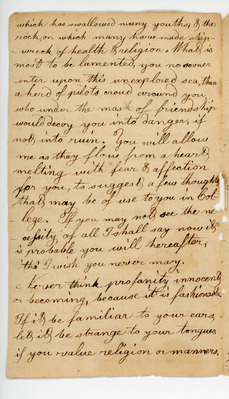 which has swallowed many youths, & the
rock, on which many have made ship-
wreck of health & religion. What is
most to be lamented, you no sooner
enter upon this unexplored sea, than
a herd of pilots croud around you,
who under the mask of friendship
would decoy you into danger, if
not into ruin. You will allow
me as they flow from a heart
melting with fear & affection
for you, to suggest a few thoughts
that may be of use to you in Col
lege. If you may not see the ne
cessity of all I shall say now it
is probable you will hereafter,
tho' I wish you never may.
Never think profanity innocent,
or becoming, because it is fashionable.
If it be familiar to your ears,
let it be strange to your tongues
if you value religion or manners.